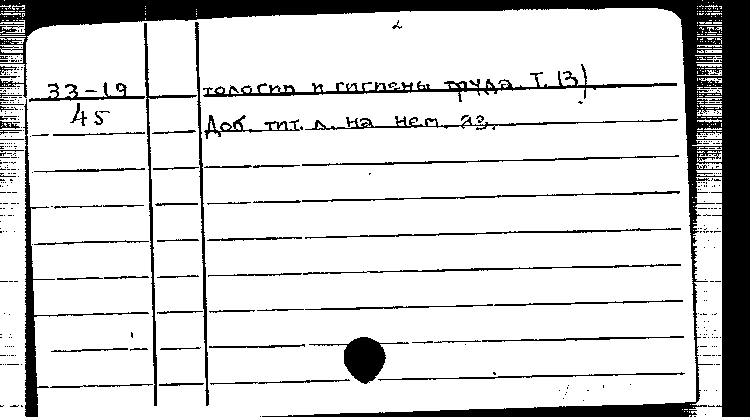 2
33-19 тологии и гигиены труда. Т. 13).
45 Доб. тит. л. на нем. яз.